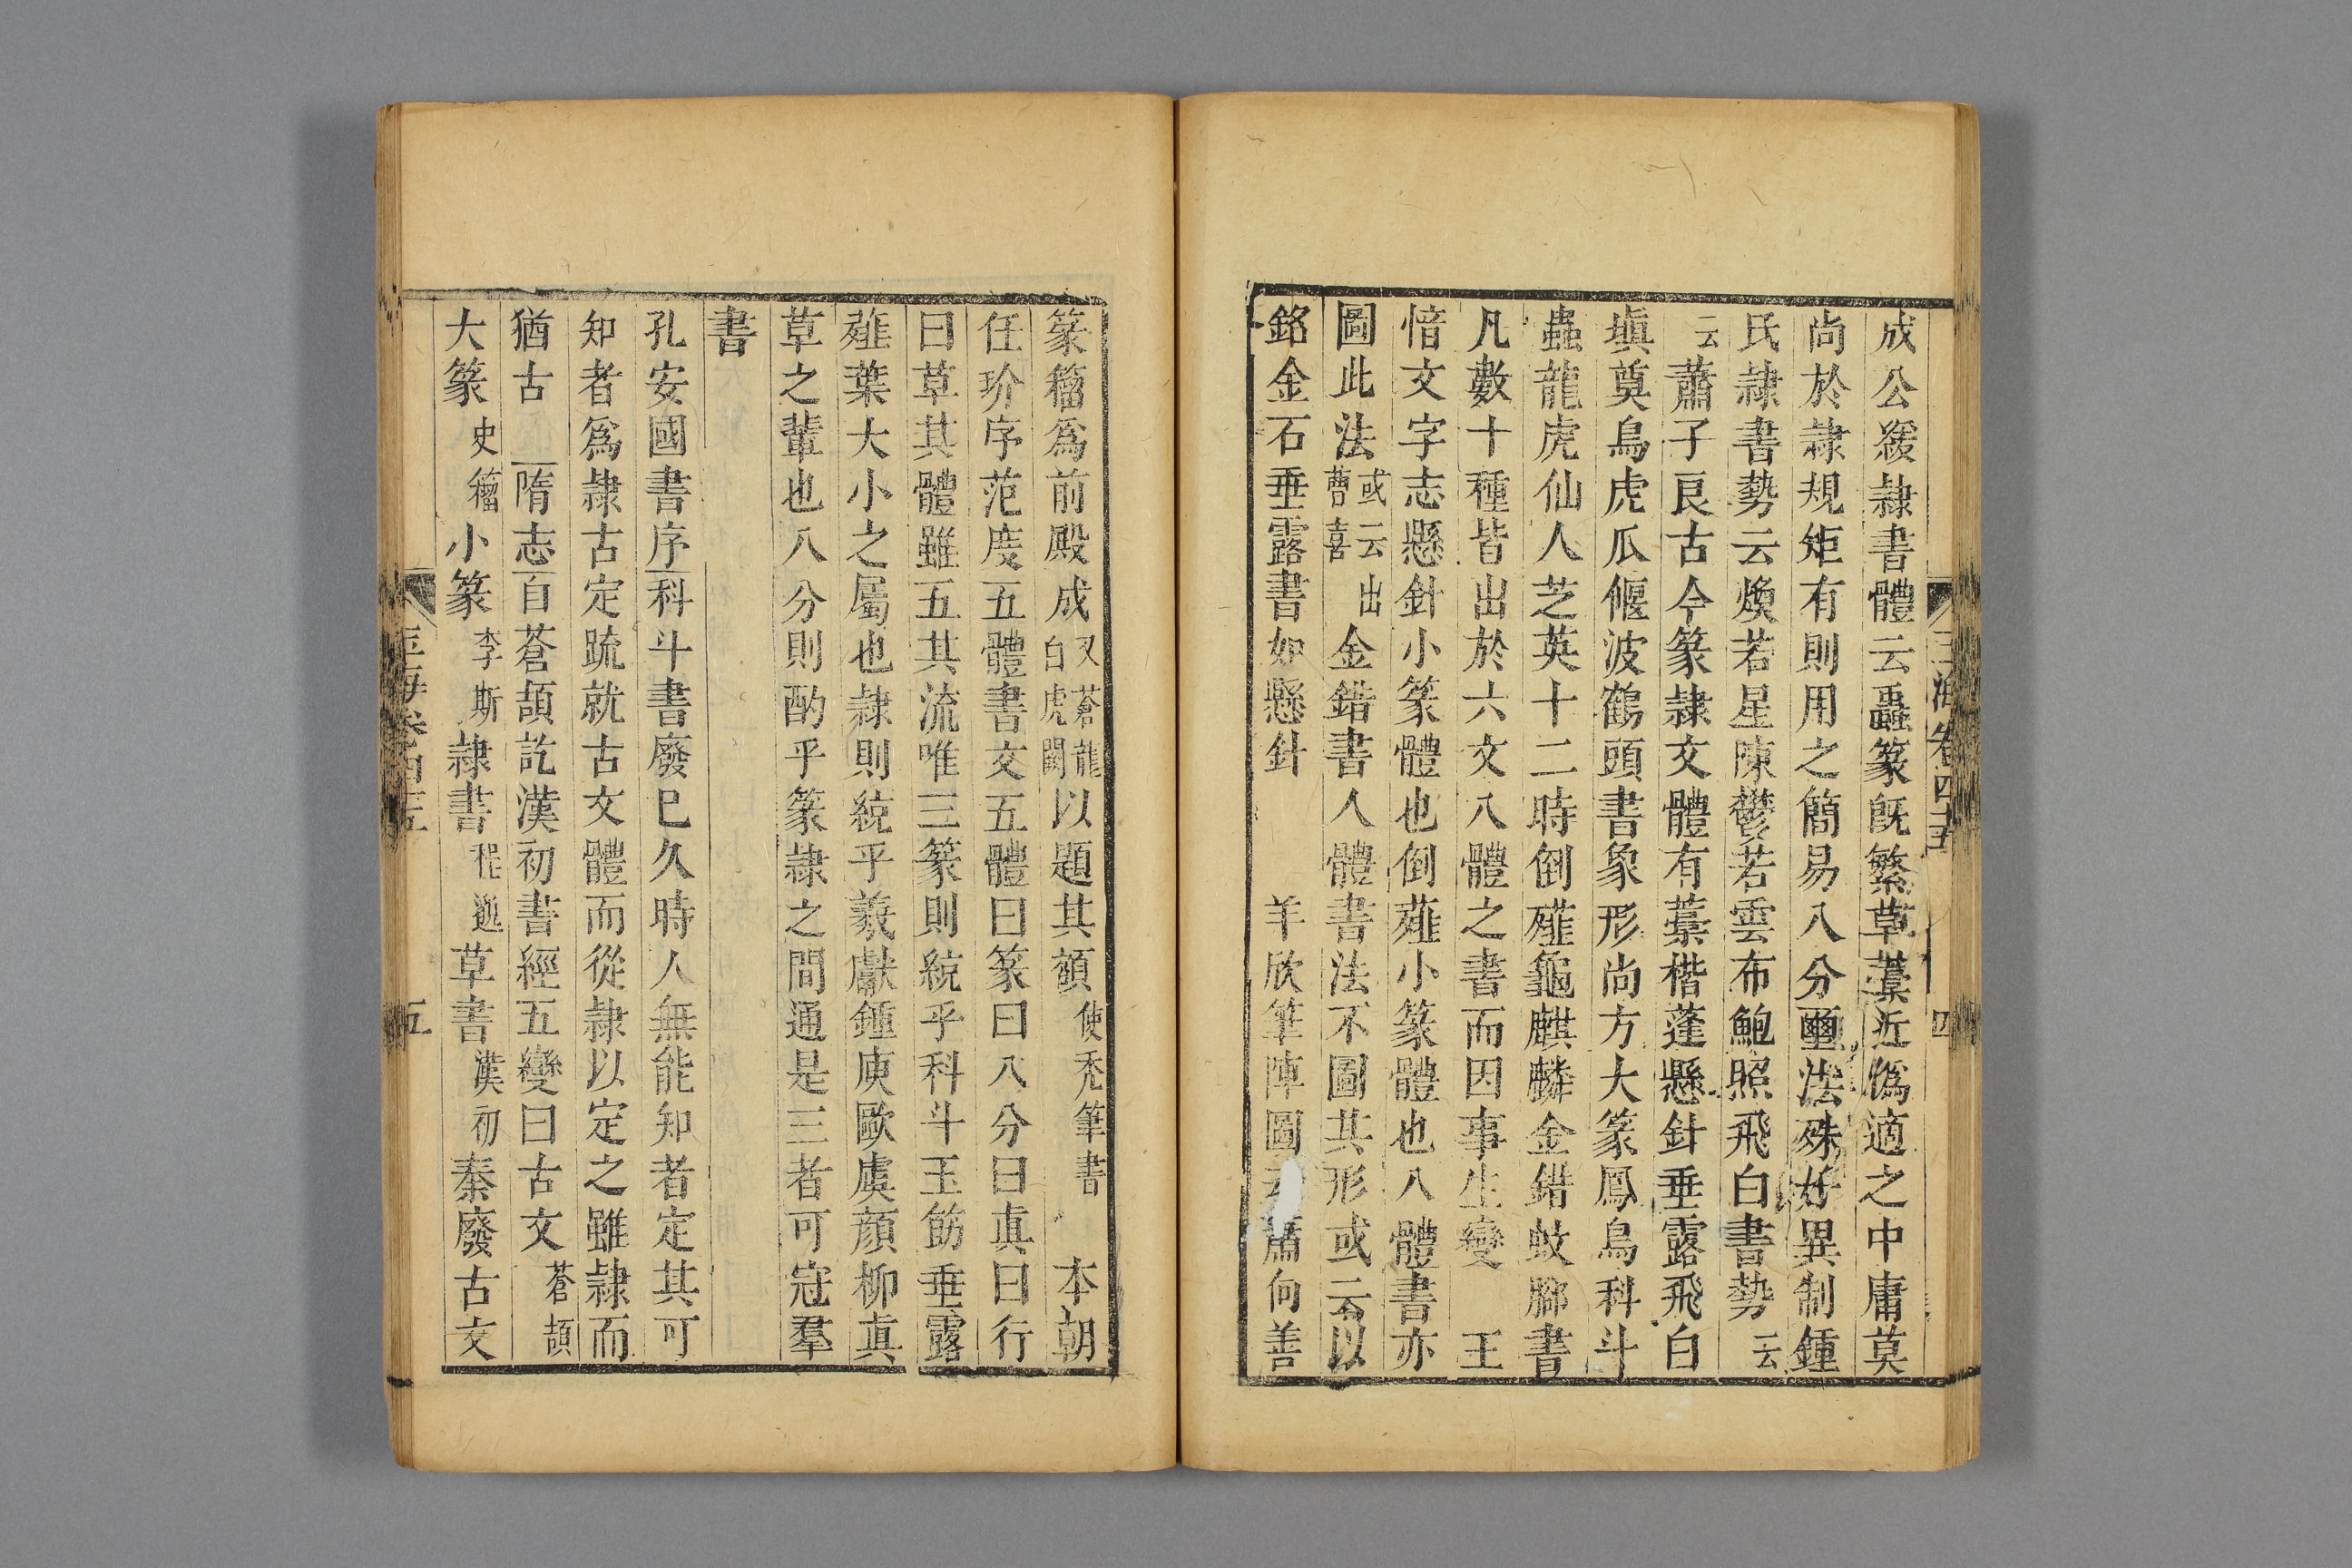 成公緩隷書體云蟲篆旣繁草藁近僞適之中庸莫
尚於隷規矩有則用之簡易八分璽法殊好異制鍾
氏隷書勢云煥若星陳鬱若雲布鮑照飛白書勢云
云蕭子良古今篆隷文體有藁楷蓬懸針垂露飛白
塡奠鳥虎爪偃波鶴頭書象形尚方大篆鳳鳥科斗
蟲龍虎仙人芝英十二時倒薤龜麒麟金錯蚊脚書
凡數十種皆出於六文八體之書而因事生變 王
愔文字志懸針小篆體也倒薤小篆體也八體書亦
圖此法或云曹喜出金錯書人體書法不圖其形或云以
銘金石垂露書如懸針 羊欣筆陣圖 蕭何善
玉海卷四十五 四
篆籀爲前殿成又蒼龍白虎闕以題其額使禿筆書 本朝
任玠序范度五體書文五體曰篆曰八分曰眞曰行
曰草其體雖五其流唯三篆則統乎科斗玉筯垂露
薤葉大小之屬也隷則統乎羲獻鍾庾歐虞顔柳眞
草之輩也八分則酌乎篆隷之間通是三者可冠羣
書
孔安國書序科斗書廢已久時人無能知者定其可
知者爲隷古定疏就古文體而從隷以定之雖隷而
猶古 隋志自蒼頡訖漢初書經五變曰古文蒼頡
大篆史籀小篆李斯隷書程邈草書漢初秦廢古文
玉海卷四十五 五